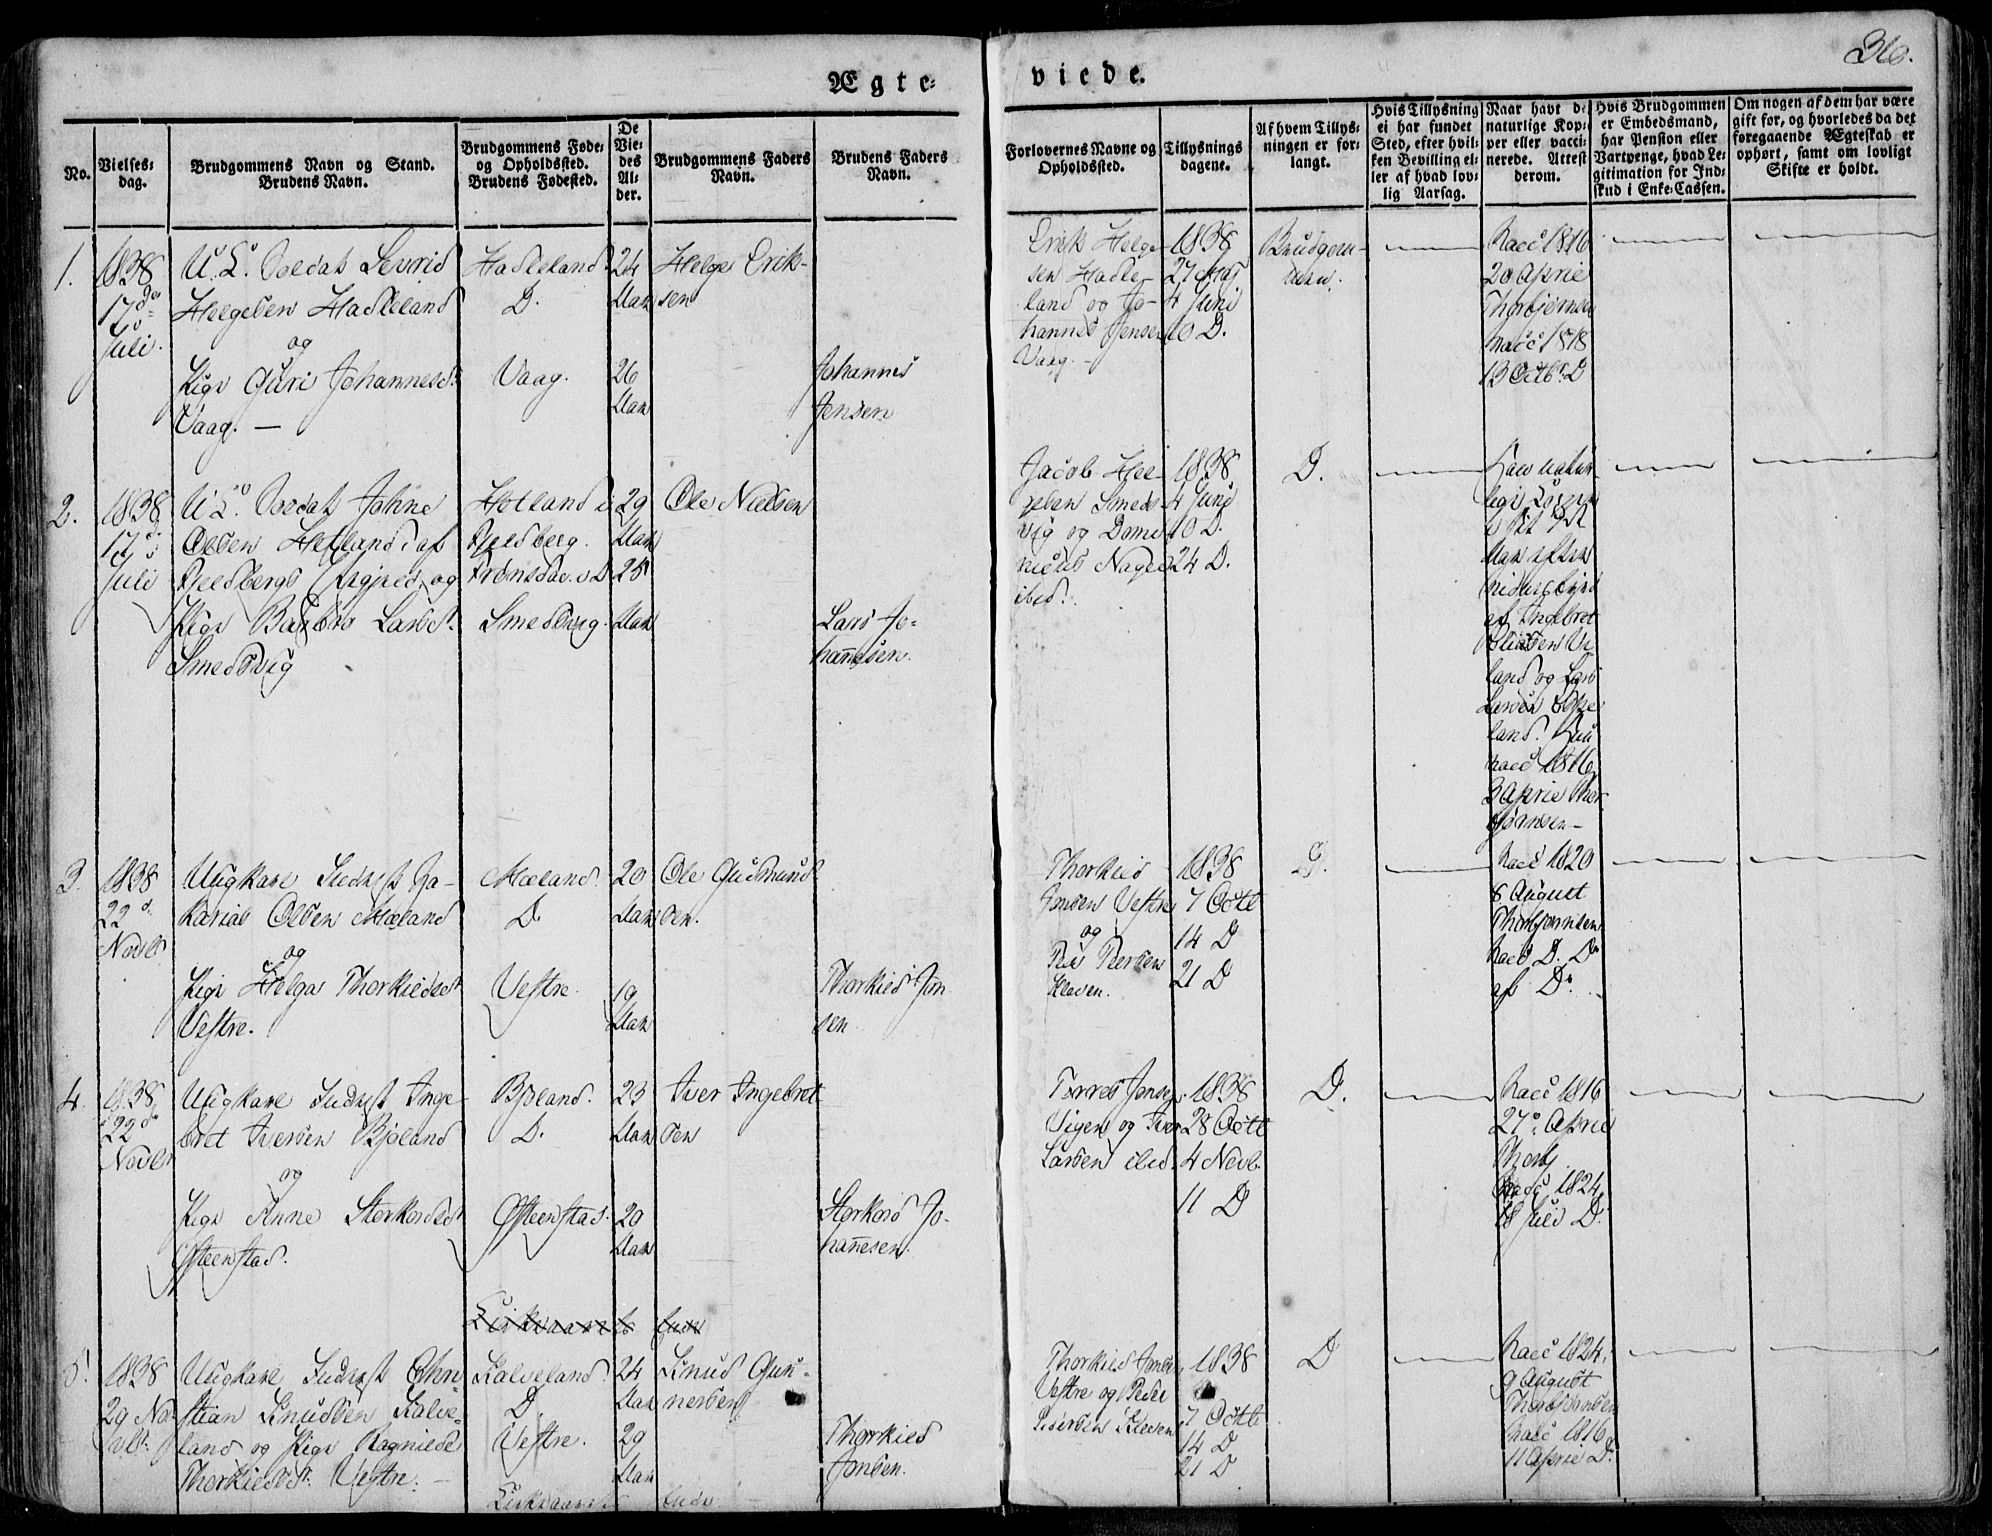 Ægte-
viede.
316.
No.
Vielses-
dag.
Brudgommens Navn og Stand.
Brudens Navn.
Brudgommens Føde-
og Opholdssted.
Brudens Fødested.
De
Vie-
des
Al-
der.
Brudgommens Faders
Navn.
Brudens Faders
Navn.
Forlovernes Navne og
Opholdssted.
Tillysnings
dagene.
Af hvem Tillys-
ningen er for-
langt.
Hvis Tillysning
ei har fundet
Sted, efter hvil-
ken Bevilling el-
ler af hvad lov-
lig Aarsag.
Naar havt de
naturlige Kop-
per eller vacci-
nerede. Attest
derom.
Hvis Brudgommen
er Embedsmand,
har Pension eller
Vartpenge, hvad Le-
gitimation for Ind-
skud i Enke-Cassen.
Om nogen af dem har være
gift for, og hvorledes da det
foregaaende Ægteskab er
ophørt, samt om lovligt
Skifte er holdt.
1.
1838
17de
Juli.
Soldat Sevrid
Helgesen Hadleland
og
Pige Guri Johannesd.
Vaag. —
Hadleland
D.
Vaag.
24
Aar
26
Aar
Helge Erik-
sen
Johannes
Jensen
Erik Helge-
sen Hadle-
land og Jo-
hannes Jensen
Vaag. —
1838
27 Maj
4 Juni
10 D.
Brudgom-
men.
Vacc 1816
20 April
Thorbjørnsen
Vacc 1818
13 Octbr D
2.
1838
17de
Juli
Soldat Johne
Olsen Hetland af
og
Pige Barbro Larsdt.
Smedsvig
Hetland i
Smedsvig.
29
Aar
25
Aar
Ole Nielsen
Lars Jo-
hannesen.
Jacob Hel-
gesen Smeds-
vig og Domi-
nicus Nagel
ibid.
1838
4 Juni
10 D.
24 D.
D.
Hav natur-
lige
af Ingebret
land og Lars
Larsen
land.
Vacc 1816
3 April Thor-
bjørnsen —
3.
1838
22d.
Novbr.
Ungkarl Inderst Za-
karias Olsen Mæland
og
Pige Helga Thorkieldsdt
Vestre.
Mæland.
D.
Vestre.
20
Aar
19
Aar
Ole Gudmund
sen.
Thorkield Jon
sen
Thorkield
Jonsen Vestre
og
Peder Pedersen
Kleven.
1838
7 Octb
14 D
21 D
D.
Vacc 1820
8 August
Thorbjørnsen
Vacc D. Do
af Do.
4.
1838
22de
Novbr
Ungkarl Inderst Inge-
bret Iversen Bjeland
og
Pige Anne Storkorsdt
Østeenstad.
Bjeland.
D.
Østeenstad.
23
Aar
20
Aar
Iver Ingebret
sen
Storkors Jo-
hannesen.
Torres Jensen
Vigen og Iver
Larsen ibid.
1838
28 Octb
4 Novb.
11 D
D.
Vacc 1816
27 April
Thorbj.
Vacc 1824
18 Juli D.
5.
1838
29 No-
vbr.
Ungkarl Inderst Chri-
stian Knudsen Kalve-
land og Pige Ragnilde
Thorkieldsdt. Vestre. —
Kalveland.
D
Vestre.
24
Aar
29
Aar
Knud Gun-
nersen
Thorkield
Jonsen.
Thorkield Jonsen
Vestre og Peder
Pedersen Kleven
1838
7 Octb
14 D
21 D
D
Vacc 1824,
9 August
Thorbjørnsen
Vacc 1816
11 April D.